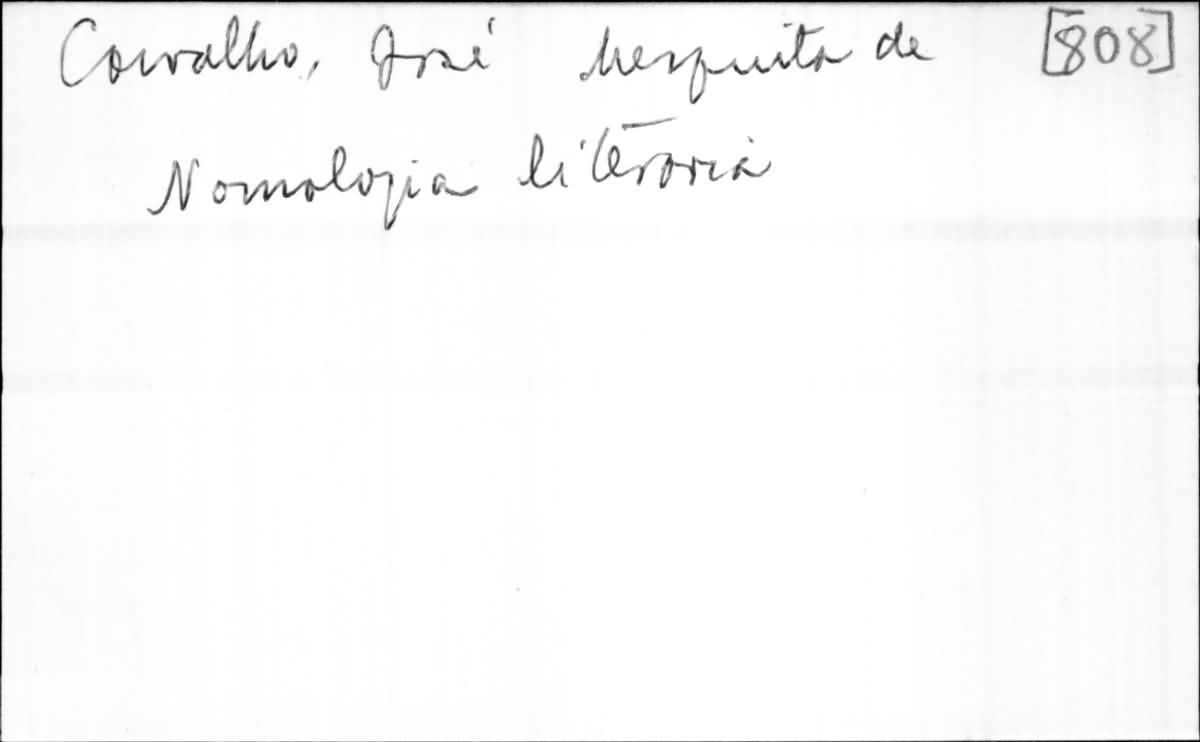 Carvalho, José Mesquita de [808]
Nomologia literaria